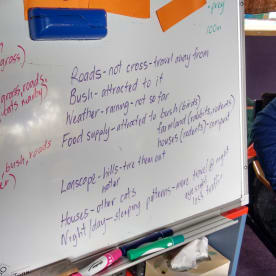 prey
100m
grass)
Roads - not cross - travel away from
Bush - attracted to it
Weather - raining - not so far
Food supply - attracted to bush (birds)
farmland (rabbits, rodents)
houses (rodents) - compost
grass, roads,
bush, roads
Lanscape - hills - tire them out
water
Houses - other cats
Night/day - sleeping patterns - more travel @ night
eyesight
less traffic